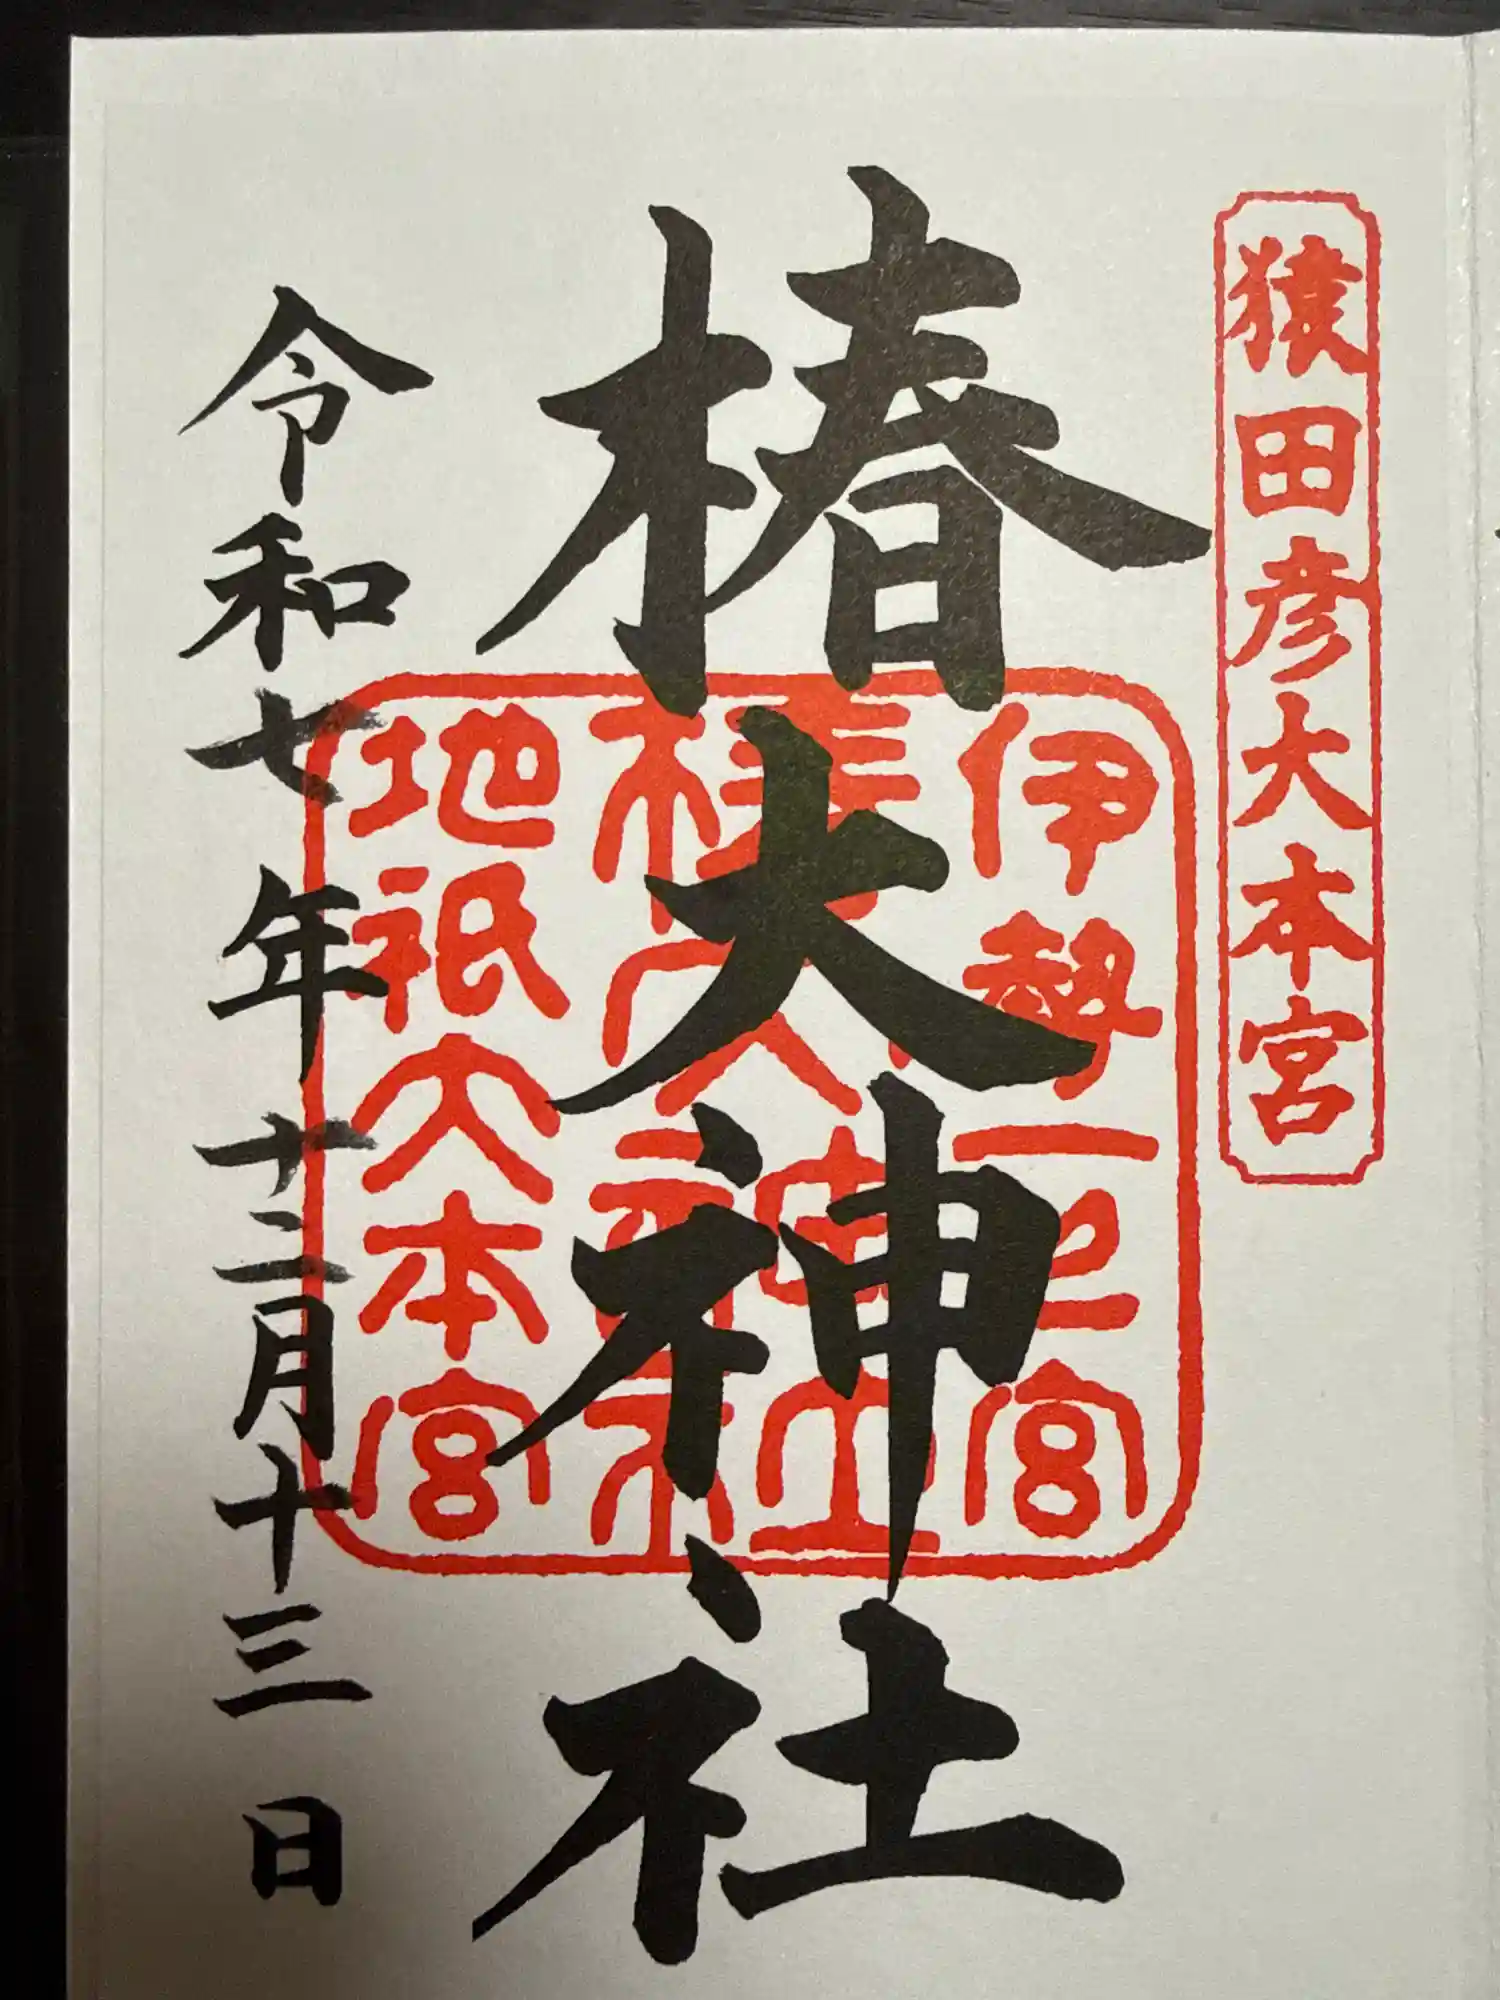 猿田彦大本宮
椿大神社
伊勢一之宮
椿大神社
地祇大本宮
令和七年十二月十三日